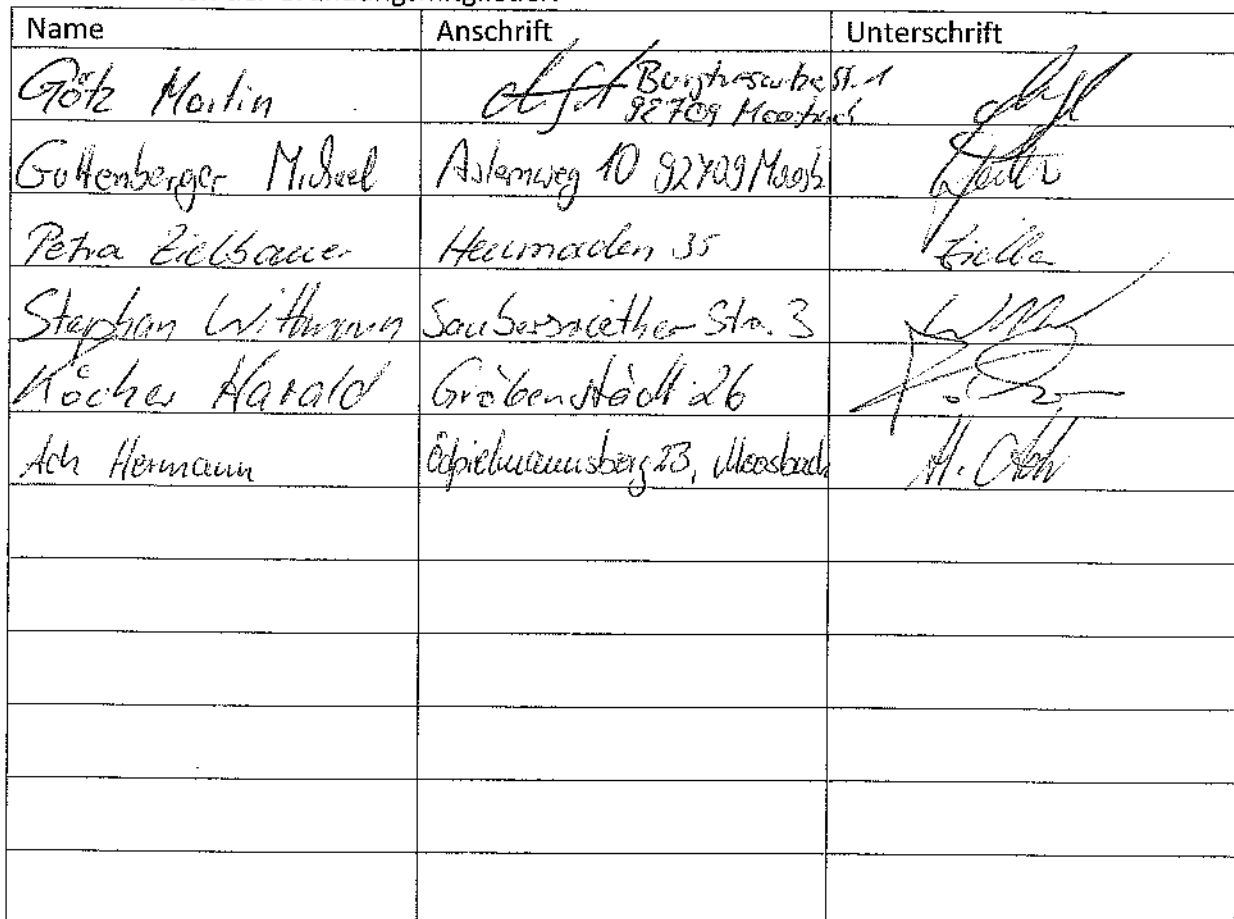 Name Anschrift Unterschrift
Götz Martin St. 1
92709 Moosbach
Guttenberger Michael Asternweg 10 92709 Moosb
Petra Zielbauer Heumaden 35
Stephan Wittmann Saubersriether Str. 3
Köcher Harald Gröbenstädt 26
Ach Hermann Ödpielmannsberg 23, Moosbach H. Ach